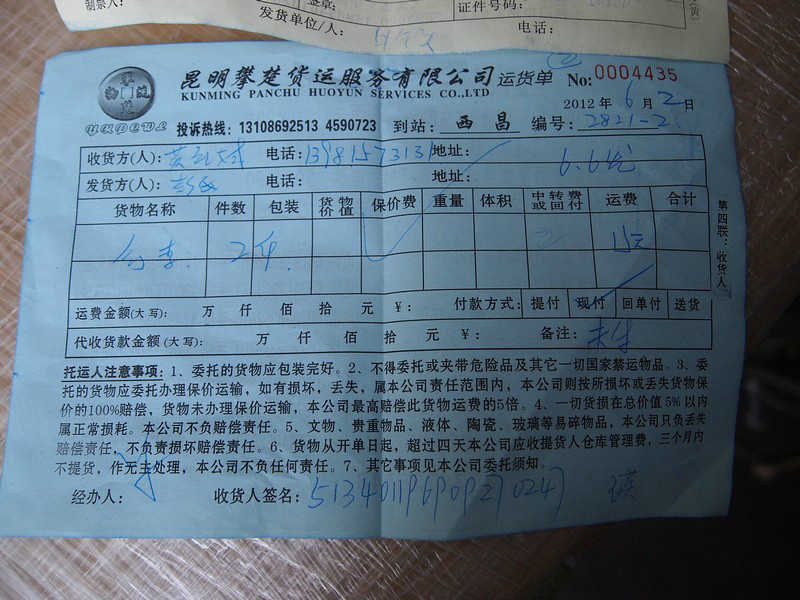 制票人： 签章： 证件号码：
发货单位/人： 电话：
昆明攀楚货运服务有限公司 运货单 No: 0004435
KUNMING PANCHU HUOYUN SERVICES CO.,LTD
2012 年 6 月 2 日
投诉热线：13108692513 4590723 到站： 西 昌 编号： 2821-2
收货方(人)： 电话：13981573131 地址：
发货方(人)： 电话： 地址：
货物名称 件数 包装 货物价值 保价费 重量 体积 中转费或回付 运费 合计
行李 2件 15元
运费金额(大写)： 万 仟 佰 拾 元 ￥： 付款方式： 提付 现付 回单付 送货
代收货款金额(大写)： 万 仟 佰 拾 元 ￥： 备注：
第四联：收货人
托运人注意事项：1、委托的货物应包装完好。2、不得委托或夹带危险品及其它一切国家禁运物品。3、委
托的货物应委托办理保价运输，如有损坏，丢失，属本公司责任范围内，本公司则按所损坏或丢失货物保
价的100%赔偿，货物未办理保价运输，本公司最高赔偿此货物运费的5倍。4、一切货损在总价值5%以内
属正常损耗。本公司不负赔偿责任。5、文物、贵重物品、液体、陶瓷、玻璃等易碎物品，本公司只负丢失
赔偿责任，不负责损坏赔偿责任。6、货物从开单日起，超过四天本公司应收提货人仓库管理费，三个月内
不提货，作无主处理，本公司不负任何责任。7、其它事项见本公司委托须知。
经办人： 收货人签名：513401196909270247